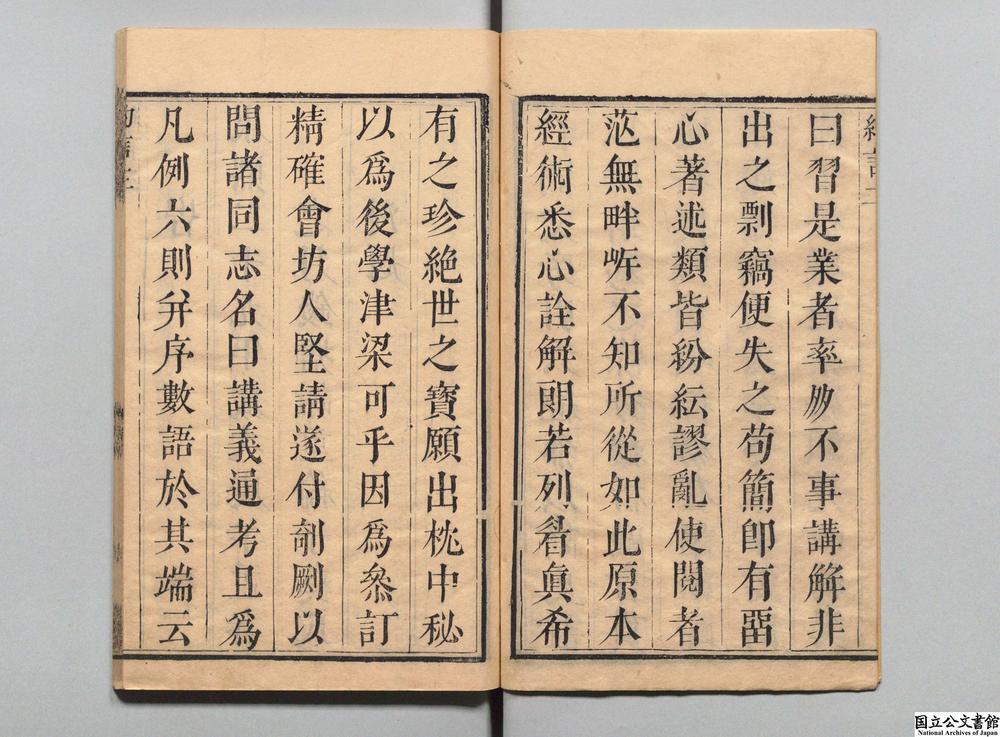 曰習是業者率多不事講解非
出之剽竊便失之苟簡卽有留
心著述類皆紛紜謬亂使閱者
茫無畔岸不知所從如此原本
經術悉心詮解朗若列眉眞希
有之珍絶世之寶願出枕中秘
以爲後學津梁可乎因爲叅訂
精確會坊人堅請遂付剞劂以
問諸同志名曰講義通考且爲
凡例六則弁序數語於其端云
国立公文書館
National Archives of Japan